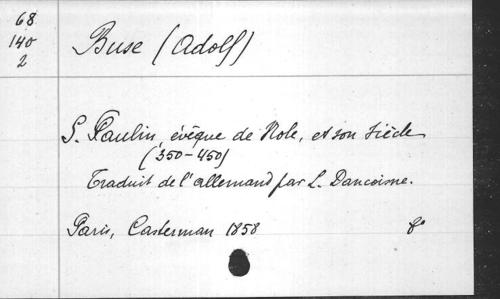 68
140
2
Buse (Adolf)
S. Paulin, évêque de Nole, et son siècle
(350-450)
Traduit de l'allemand par L. Dancoisne.
Paris, Casterman 1858 8°